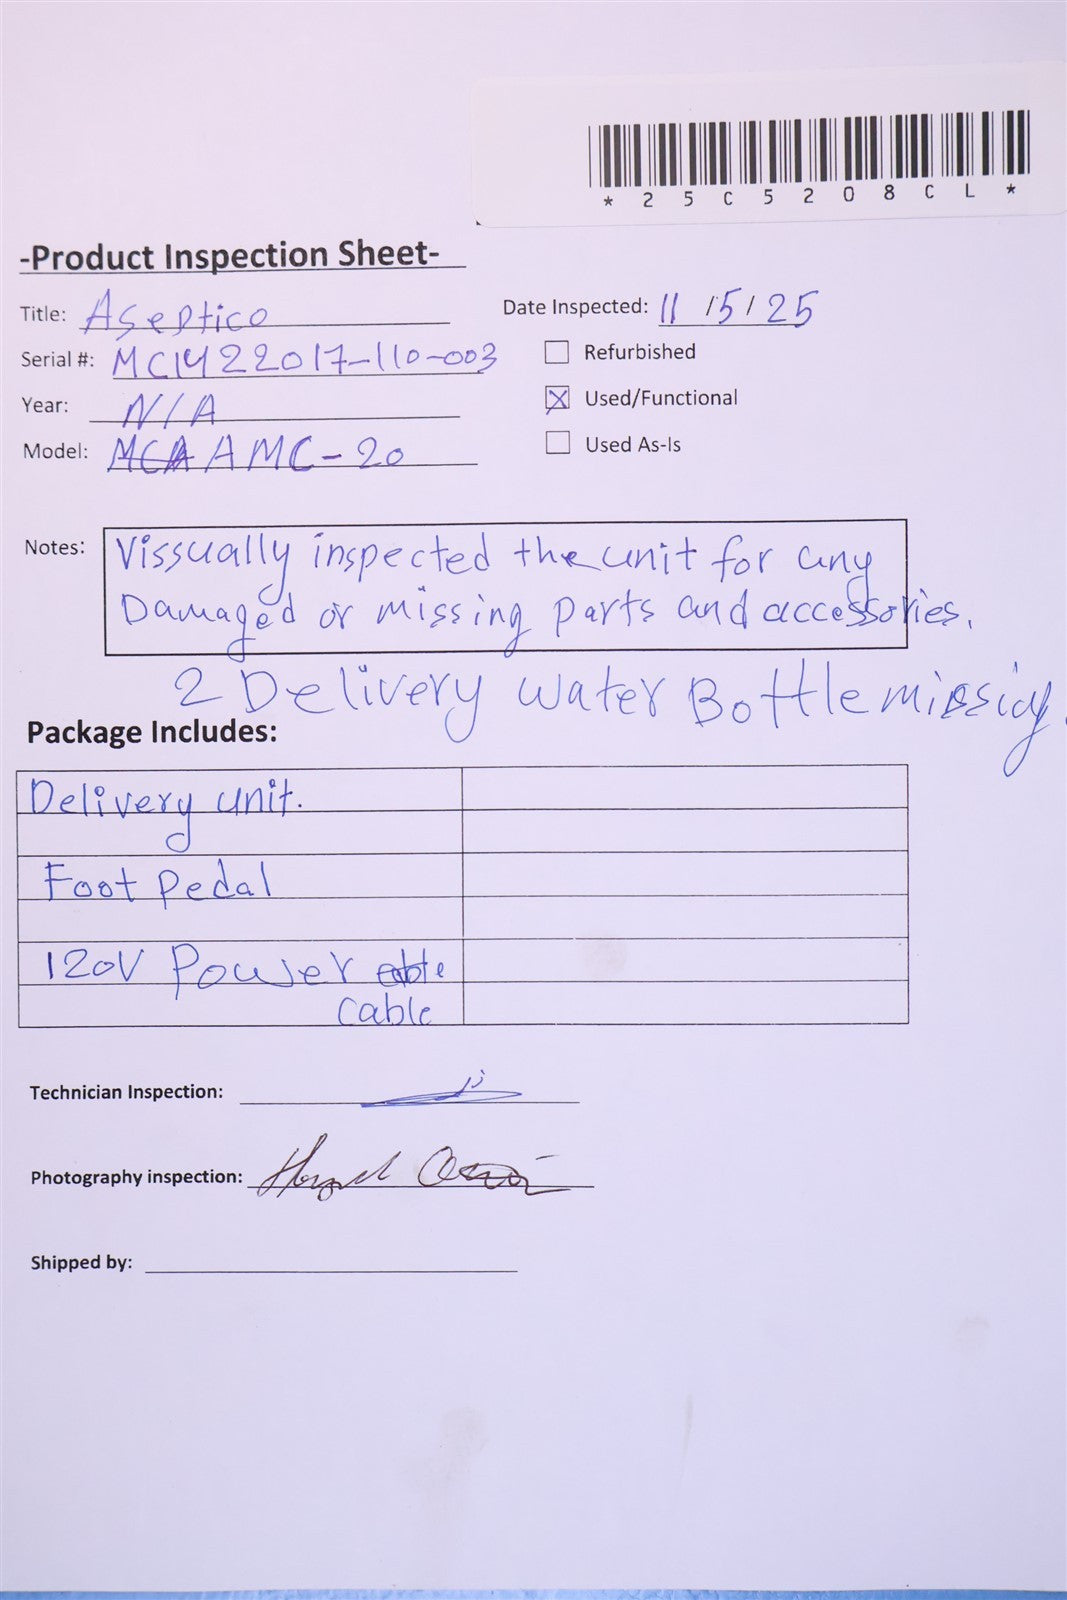 *25C5208CL*
-Product Inspection Sheet-
Title: Aseptico
Date Inspected: 11/5/25
Serial #: MC1422017-110-003
Refurbished
Year: N/A
Used/Functional
Model: AMC-20
Used As-Is
Notes: Vissually inspected the unit for any
Damaged or missing parts and accessories.
2 Delivery water Bottle missing.
Package Includes:
Delivery unit.
Foot Pedal
120V Power
cable
Technician Inspection:
Photography inspection:
Shipped by: